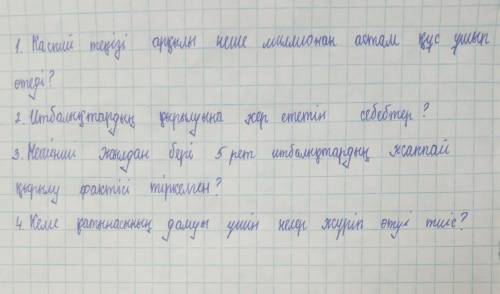 1. Каспий теңізі арқылы неше миллионан астам құс ұшып
өтеді?
2. Итбалықтардың қырылуына жер ететін себебтер?
3. Нешінші жылдан бері 5 рет итбалықтардың жаппай
қырылу фактісі тіркелген?
4. Кеме қатынасының дамуы үшін нелер жүріп өтуі тиіс?